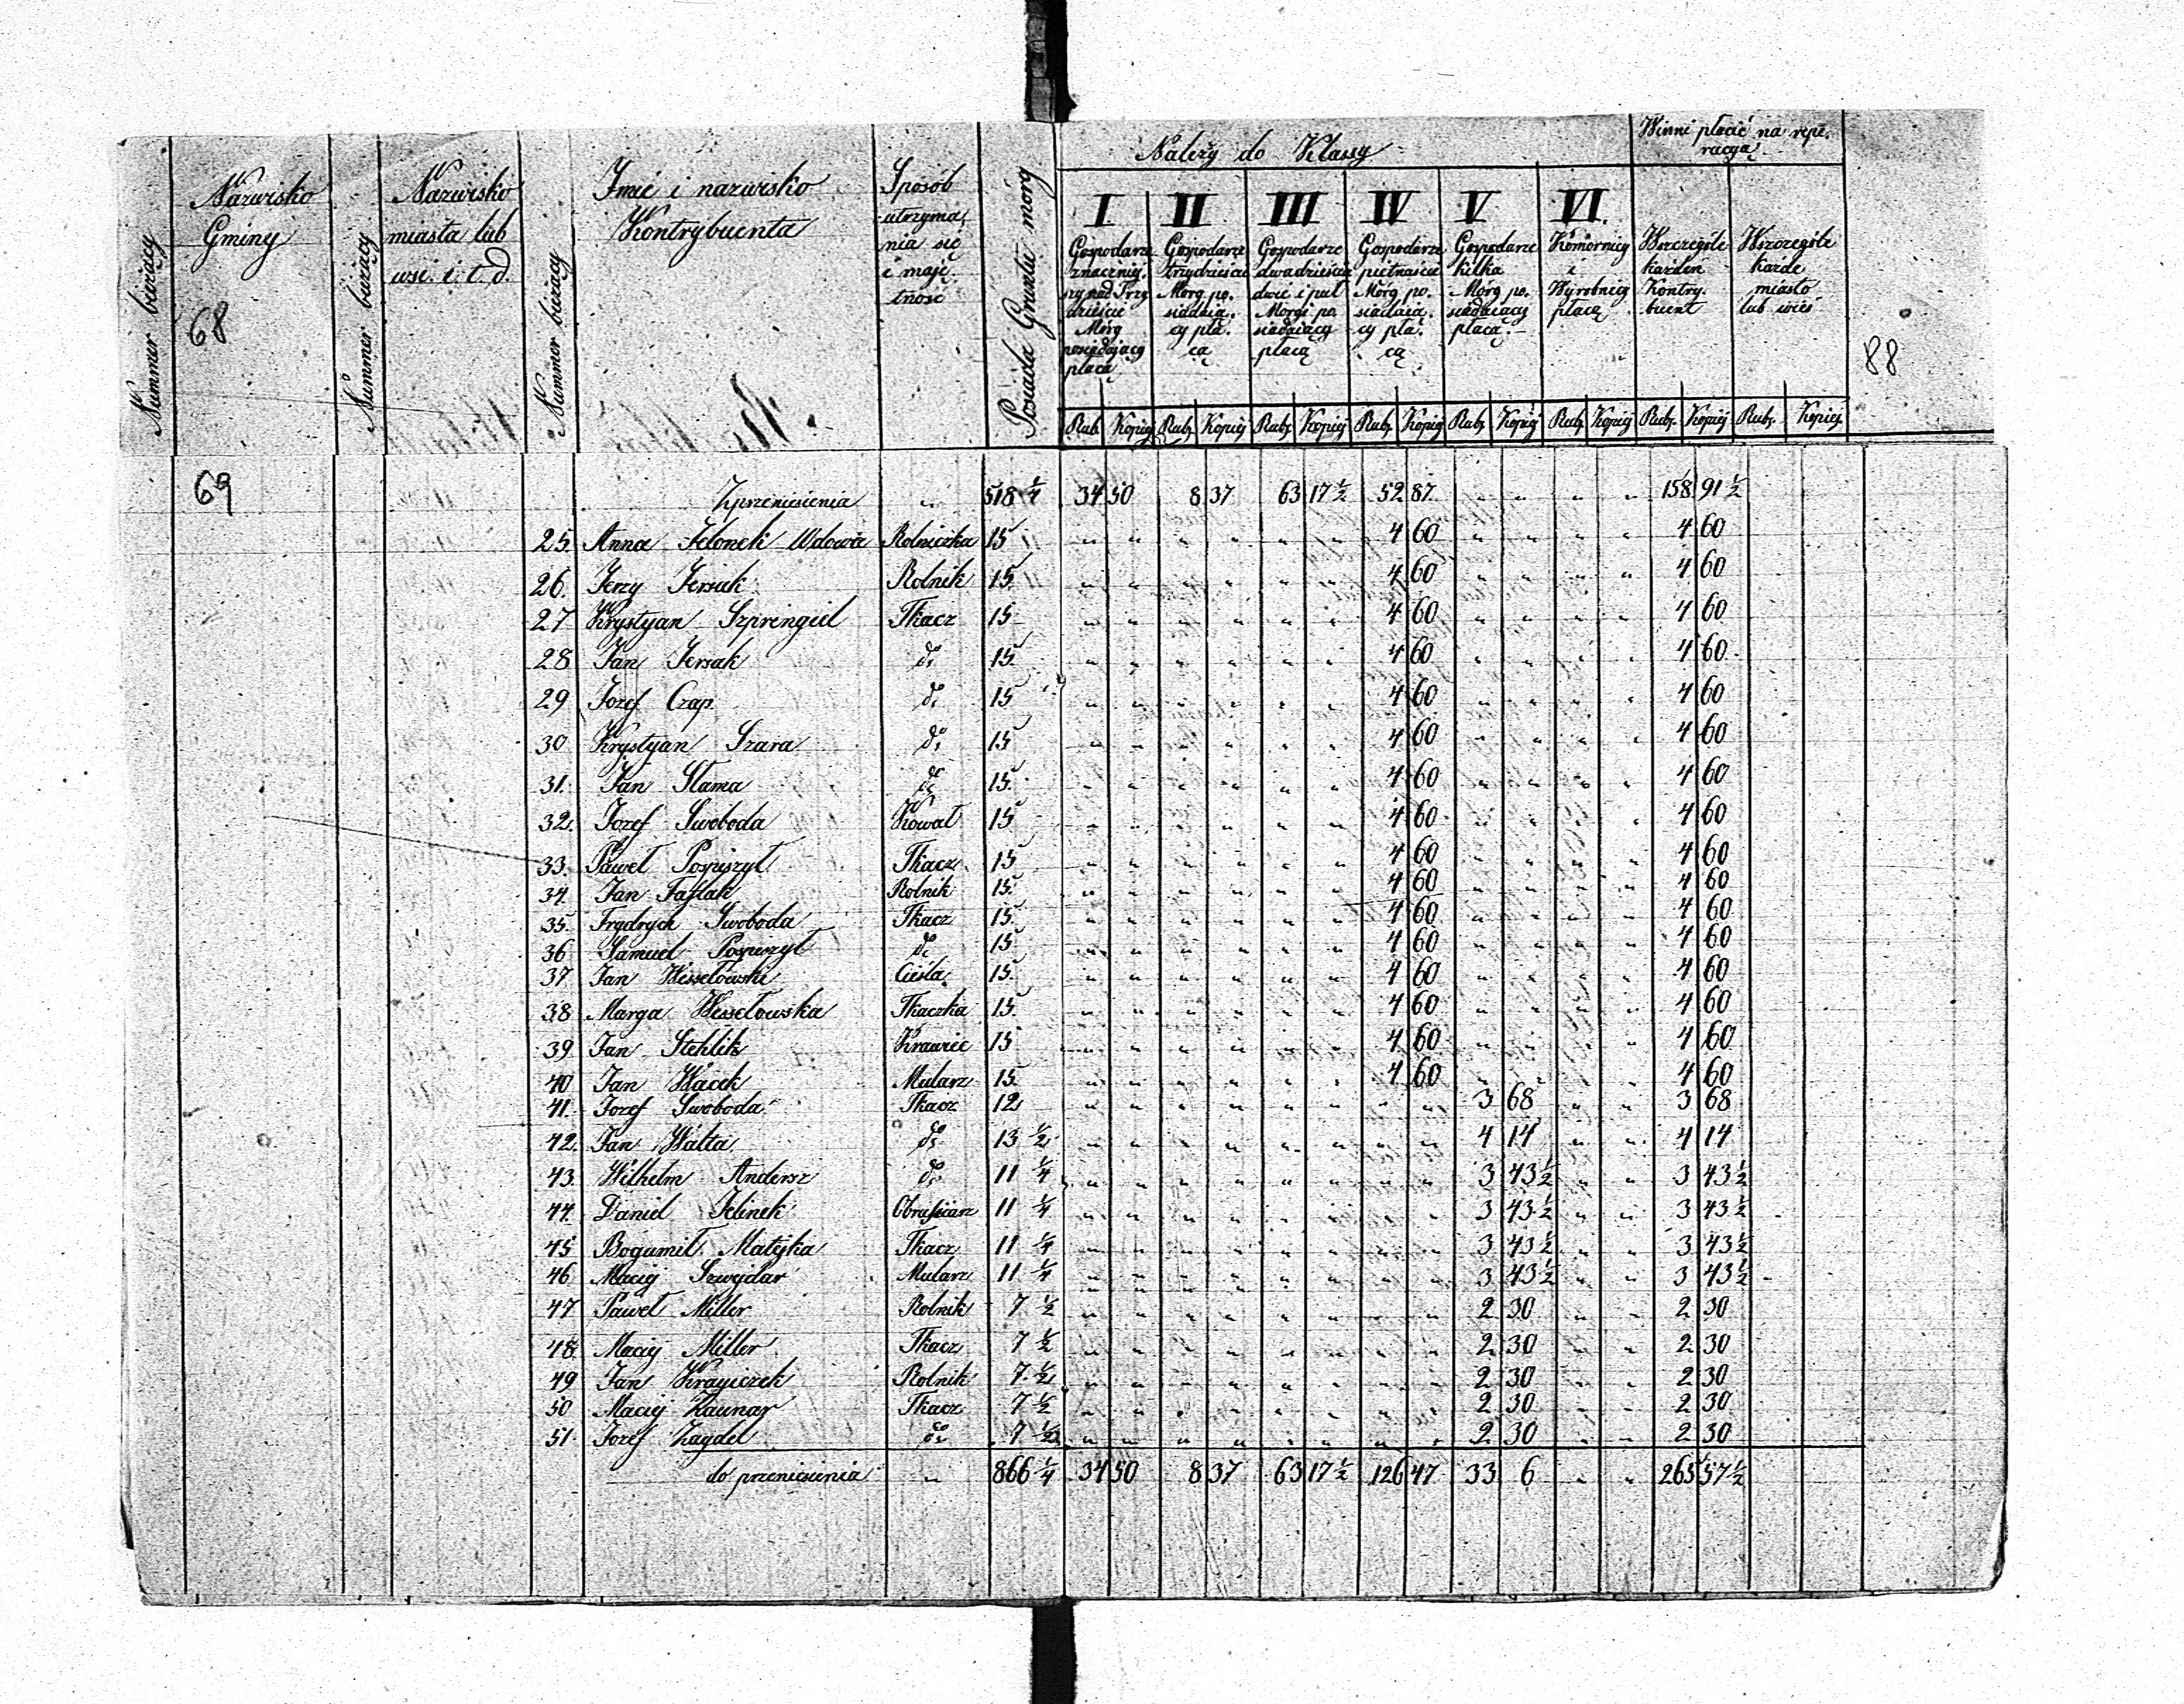 Należy do Klassy
Winni płacić na repe-
racyą
Nummer bieżący
Nazwisko
Gminy
68
Nummer bieżący
Nazwisko
miasta lub
wsi. i. t. d.
Nummer bieżący
Imie i nazwisko
Kontrybuenta
Sposób
utrzyma-
nia się
i maję-
tność
Posiada Gruntu morg
I
Gospodarze
znaczniej-
szy nad Trzy
dzieście
Morg
posiadający
płacą
II
Gospodarze
trzydzieście
Morg po-
siadają-
cy pła-
cą
III
Gospodarze
dwadzieścia
dwie i pul
Morgi po
siadający
płacą
IV
Gospodarze
pietnaście
Morg po-
siadają-
cy pła-
cą
V
Gospodarze
kilka
Morg po-
siadający
płacą.
VI.
Komornicy
i
Wyrobnicy
płacą
Wszczególe
każden
Kontry-
buent
Wszczególe
każde
miasto
lub wieś
88
Rub. Kopiej Rub. Kopiej Rub. Kopiej Rub. Kopiej Rub. Kopiej Rub. Kopiej Rub. Kopiej Rub. Kopiej
69
Zprzeniesienia " 518 1/4 34 50 8 37 63 17 1/2 52 87 " " " " 158 91 1/2
25. Anna Jelonek Wdowa Rolniczka 15 " " " " " " 4 60 " " " " 4 60
26. Jerzy Jersak Rolnik 15 " " " " " " 4 60 " " " " 4 60
27 Krystyan Szpringiel Tkacz 15 " " " " " " 4 60 " " " " 4 60
28 Jan Jersak do 15 " " " " " " 4 60 " " " " 4 60
29 Jozef Czap do 15 " " " " " " 4 60 " " " " 4 60
30 Krystyan Szara do 15 " " " " " " 4 60 " " " " 4 60
31. Jan Slama do 15 " " " " " " 4 60 " " " " 4 60
32. Jozef Swoboda Kowal 15 " " " " " " 4 60 " " " " 4 60
33. Paweł Pospiszył Tkacz 15 " " " " " " 4 60 " " " " 4 60
34. Jan Rolnik 15 " " " " " " 4 60 " " " " 4 60
35. Frydrych Swoboda Tkacz 15 " " " " " " 4 60 " " " " 4 60
36 Samuel Pospiszył do 15 " " " " " " 4 60 " " " " 4 60
37 Jan Wesselowski Cieśla 15 " " " " " " 4 60 " " " " 4 60
38 Marga Wesselowska Tkaczka 15 " " " " " " 4 60 " " " " 4 60
39 Jan Stehlik Krawiec 15 " " " " " " 4 60 " " " " 4 60
40 Jan Wacek Mularz 15 " " " " " " 4 60 " " " " 4 60
41. Jozef Swoboda Tkacz 12 " " " " " " " " 3 68 " " 3 68
42. Jan Walta do 13 1/2 " " " " " " " " 4 14 " " 4 14
43. Wilhelm Andersz do 11 1/4 " " " " " " " " 3 43 1/2 " " 3 43 1/2
44. Daniel Jelinek 11 1/4 " " " " " " " " 3 43 1/2 " " 3 43 1/2
45 Bogumił Matejka Tkacz 11 1/4 " " " " " " " " 3 43 1/2 " " 3 43 1/2
46 Maciej Szwejdar Mularz 11 1/4 " " " " " " " " 3 43 1/2 " " 3 43 1/2
47 Paweł Miller Rolnik 7 1/2 " " " " " " " " 2 30 " " 2 30
48. Maciej Miller Tkacz 7 1/2 " " " " " " " " 2 30 " " 2 30
49 Jan Krayiczek Rolnik 7 1/2 " " " " " " " " 2 30 " " 2 30
50 Maciej Kaunar Tkacz 7 1/2 " " " " " " " " 2 30 " " 2 30
51. Jozef Zagdel do 7 1/2 " " " " " " " " 2 30 " " 2 30
do przeniesienia " 866 1/4 34 50 8 37 63 17 1/2 126 47 33 6 " " 265 57 1/2